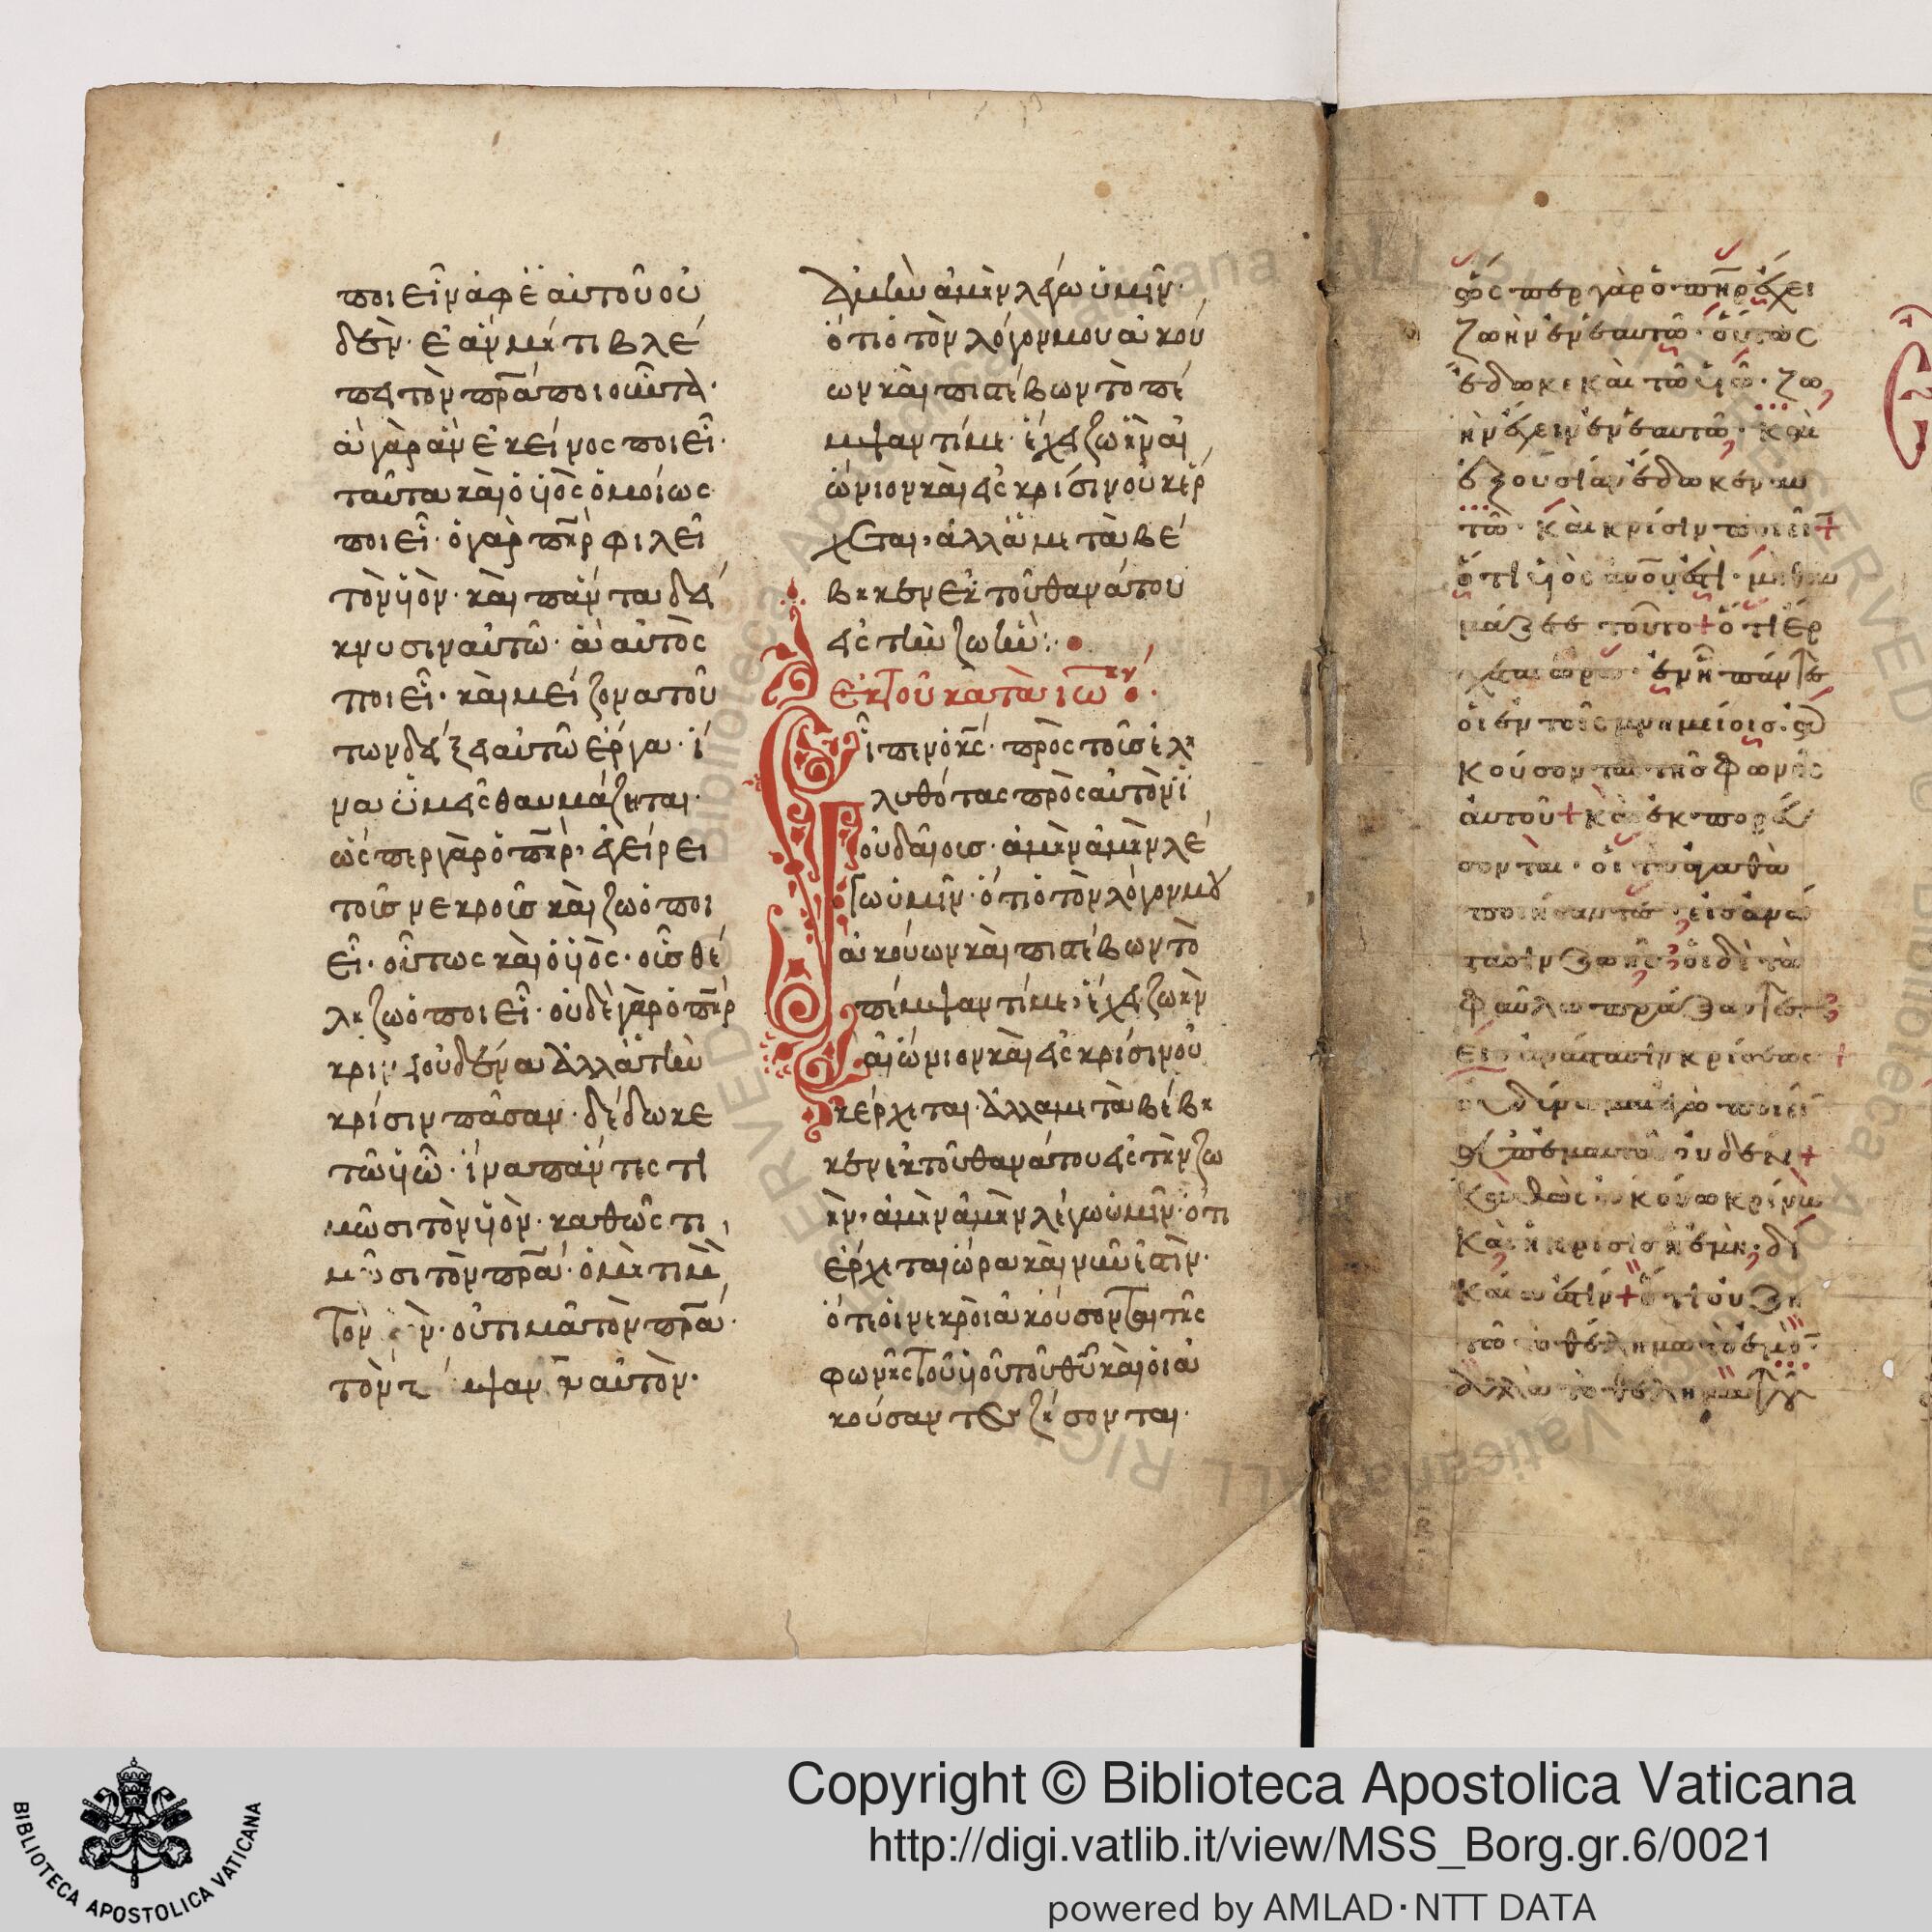 ποιεῖν ἀφ ἑαυτοῦ οὐ
δὲν· ἐὰν μή τι βλέ
πει τὸν πρ̅α ποιοῦντα·
ἃ γὰρ ἂν ἐκεῖνος ποιεῖ·
ταῦτα καὶ ὁ υἱὸς ὁμοίως
ποιεῖ· ὁ γὰρ πη̅ρ φιλεῖ
τὸν υἱὸν· καὶ πάντα δεί
κνυσιν αὐτῶ· ἃ αὐτὸς
ποιεῖ· καὶ μείζονα τού
των δείξει αὐτῶ ἔργα· ἵ
να ὑμεῖς θαυμάζηται·
ὥσπερ γὰρ ὁ πη̅ρ, ἐγείρει
τοὺς νεκροὺς καὶ ζωὁποι
εῖ· οὕτως καὶ ὁ υἱὸς· οὓς θέ
λη ζωὁποιεῖ· οὐδὲ γὰρ ὁ πη̅ρ
κρινει οὐδένα ἀλλὰ τὴν
κρίσιν πᾶσαν· δέδωκε
τῶ υἱῶ· ἵνα πάντες τι
μῶσι τὸν υἱὸν· καθὼς τι
μῶσι τὸν πρ̅α· ὁ μὴ τιμῶν
τὸν ὸν· οὐ τιμᾶ τὸν πρ̅α·
τὸν π μψαν αὐτὸν·
Ἀμὴν ἀμὴν λέγω ὑμῖν·
ὅτι ὁ τὸν λόγον μου ἀκού
ων καὶ πιστέβων τὸ πέ
μψαντί με· ἔχει ζωὴν αἰ
ώνιον καὶ εἰς κρίσιν οὐκ ἔρ
χεται, ἀλλὰ με τὰ βέ
βηκεν ἐκ τοῦ θανάτου
εἰς τὴν ζωήν:·
Εκ τοῦ κατὰ ιω
Εἶπεν ὁ κ̅ς· πρὸς τοὺς ἐλη
λυθότας πρὸς αὐτὸν ἰ
ουδαίοισ· ἀμὴν ἀμὴν λέ
γω ὑμῖν· ὅτι ὁ τὸν λόγον μου
ἀκούων καὶ πιστέβων τὸ
πέμψαντί με, ἔχει ζωὴν
αἰώνιον καὶ εἰς κρίσιν οὐ
κέρχεται· ἀλλα με τὰ βέβη
κεν ἐκ τοῦ θανάτου εἰς τὴν ζω
ὴν, ἀμὴν ἀμὴν λέγω ὑμῖν· ὅτι
ἔρχεται ὥρα καὶ νῦν ἐστὶν·
ὅτε οἱ νεκροὶ ἀκούσονται τῆς
φωνῆς τοῦ υἱοῦ τοῦ θυ̅ καὶ οἱ ἀ
κούσαντες ζήσονται·
ὥσπερ γὰρ ὁ πη̅ρ ἔχει
ζωὴν ἐν ἑαυτῶ· οὕτως
ἔδωκε καὶ τῶ υἱῶ· ζω
ὴν ἔχειν ἐν ἑαυτῶ· καὶ
ἐξουσίαν ἔδωκεν αυ
τῶ· καὶ κρίσιν ποιεῖν +
ὅτι υἱὸς αν̅ου ἐστὶ· μὴ θαυ
μάζετε τοῦτο + ὅτι ἔρ
χεται ὥρα· ἐν ἧ πάντες
οἱ ἐν τοῖς μνημείοις ἀ
κούσονται τῆς φωνῆς
αὐτοῦ + καὶ ἐκπορεύ
σονται· οἱ τὰ ἀγαθὰ
ποιήσαντες εἰς ἀνά
στασιν ζωῆς οἱ δὲ τὰ
φαῦλα πράξαντες
εἰς ἀνάστασιν κρίσεως +
οὐ δύναμαι ἐγὼ ποιεῖν
ἀπ ἐμαυτοῦ οὐδέν +
Καθὼς ἀκούω κρίνω
Καὶ ἡ κρίσις ἡ ἐμὴ· δι
καία ἐστίν + ὅτι οὐ ζη
τῶ τὸ θέλημα τὸ ἐμὸν
ἀλλὰ τὸ θέλημα
Copyright © Biblioteca Apostolica Vaticana
http://digi.vatlib.it/view/MSS_Borg.gr.6/0021
powered by AMLAD·NTT DATA
BIBLIOTECA APOSTOLICA VATICANA